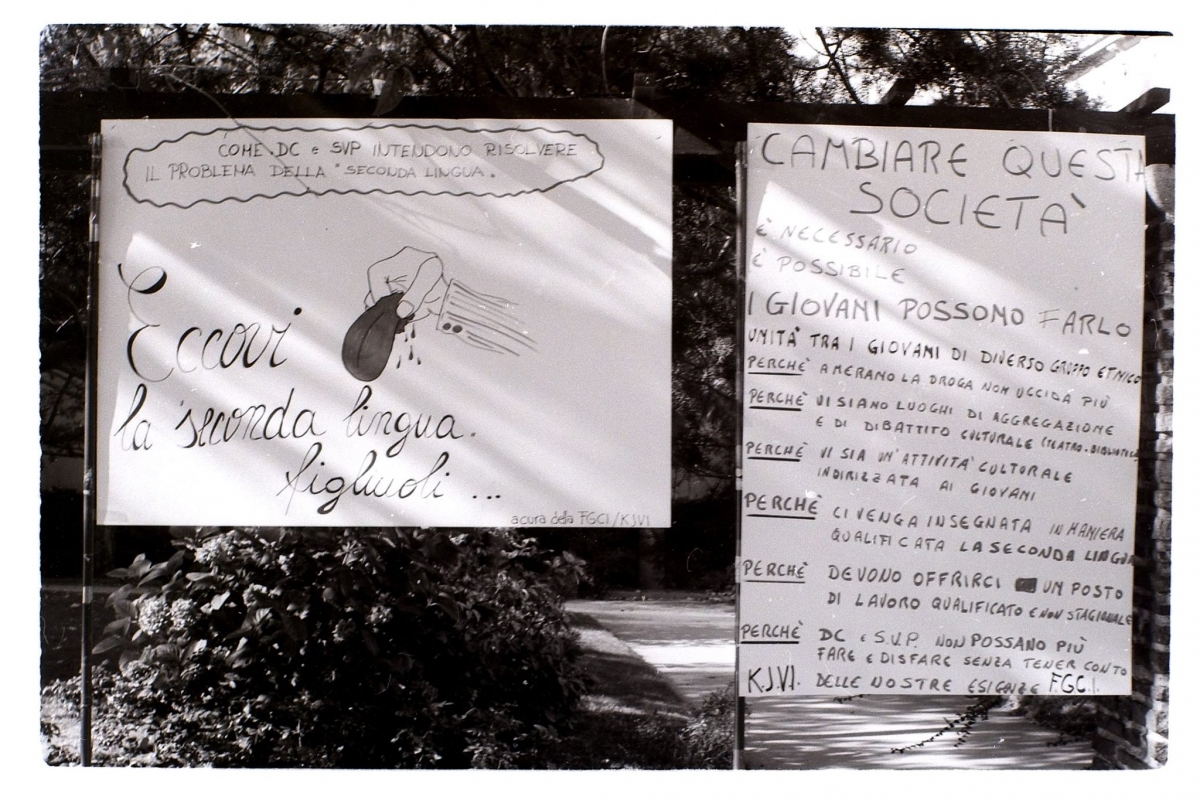 COME DC e SVP INTENDONO RISOLVERE
IL PROBLEMA DELLA "SECONDA LINGUA.
Eccovi
la seconda lingua.
figliuoli ...
a cura della FGCI/KJVI
CAMBIARE QUESTA
SOCIETA'
È NECESSARIO
È POSSIBILE
I GIOVANI POSSONO FARLO
UNITA' TRA I GIOVANI DI DIVERSO GRUPPO ETNICO
PERCHÈ A MERANO LA DROGA NON UCCIDA PIÙ
PERCHÈ VI SIANO LUOGHI DI AGGREGAZIONE
E DI DIBATTITO CULTURALE (TEATRO-BIBLIOTECA
PERCHÈ VI SIA UN'ATTIVITA' CULTURALE
INDIRIZZATA AI GIOVANI
PERCHÈ CI VENGA INSEGNATA IN MANIERA
QUALIFICATA LA SECONDA LINGUA
PERCHÈ DEVONO OFFRIRCI UN POSTO
DI LAVORO QUALIFICATO E NON STAGIONALE
PERCHÈ DC e S.V.P. NON POSSANO PIÙ
FARE E DISFARE SENZA TENER CONTO
K.J.V.I. DELLE NOSTRE ESIGENZE F.G.C.I.